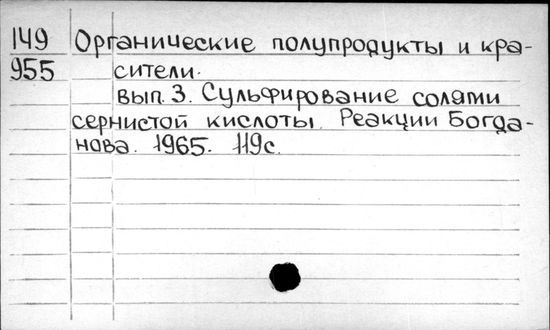 149 Органические полупродукты и кра-
955 сители.
вып. 3. Сульфирование солями
сернистой кислоты. Реакции Богда-
нова. 1965. 119с.